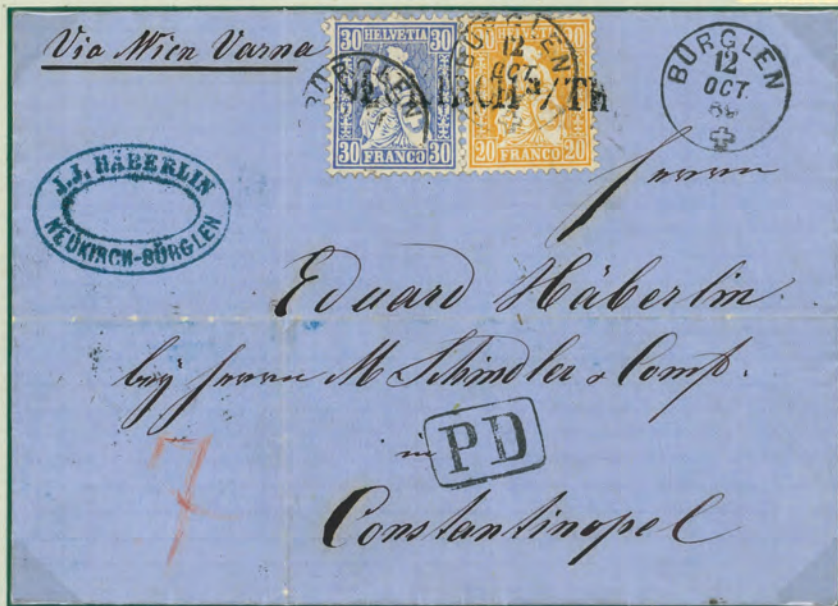 Via Wien Varna
30 HELVETIA 30
30 FRANCO 30
20 FRANCO 20
BÜRGLEN
BÜRGLEN
12
OCT
IRCH /Th
BÜRGLEN
12
OCT.
J.J. HÄBERLIN
NEUKIRCH-BÜRGLEN
Herrn
Eduard Häberlin.
bey Herrn M Schindler & Comp.
in
PD
Constantinopel
7